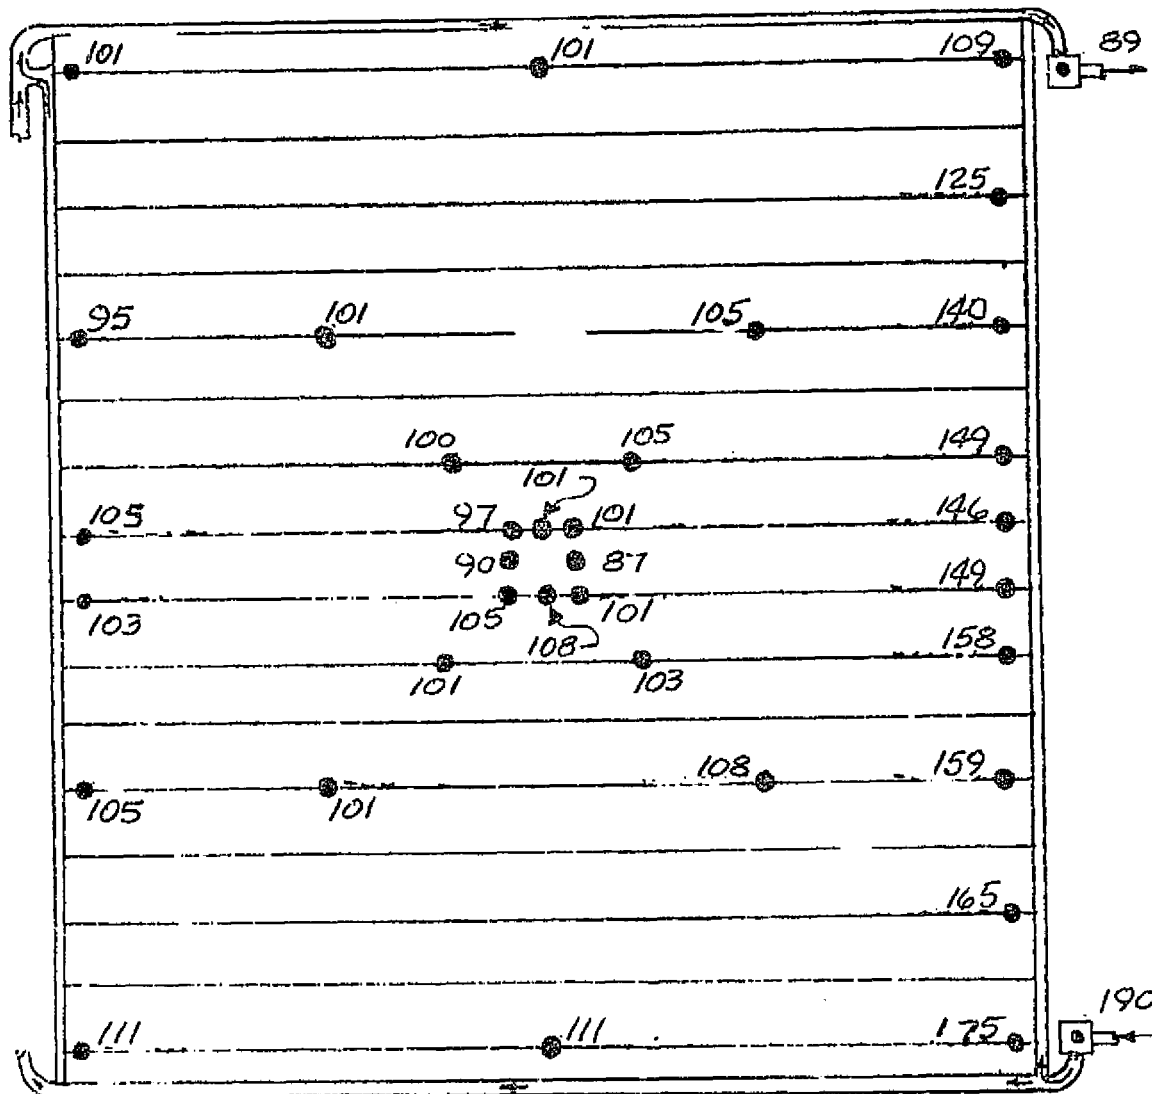 101 101 109 89
125
95 101 105 140
100 105 149
101
105 97 101 146
90 87
149
103 105 101
108 158
101 103
108 159
105 101
165
190
111 111 175